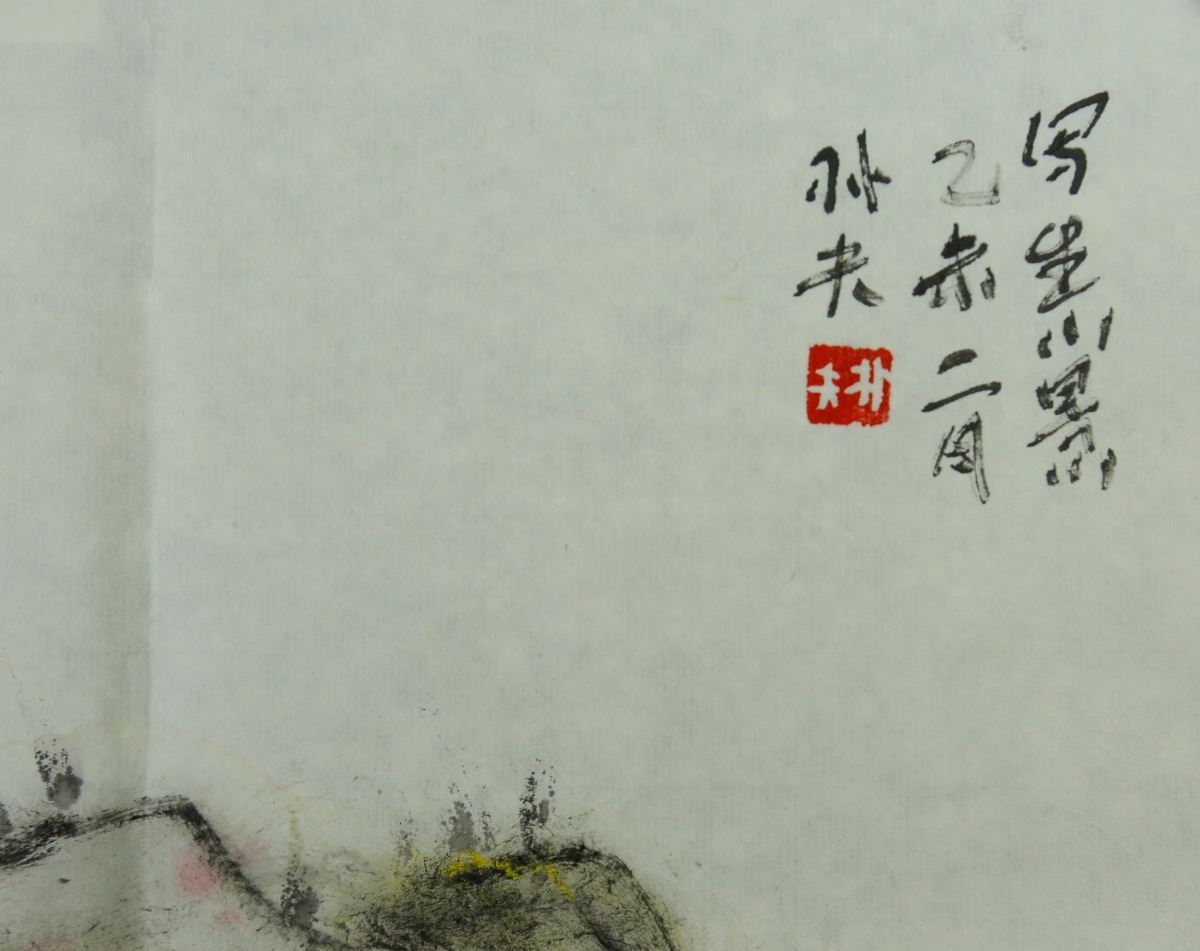 写生小景
乙未二月
夫
夫